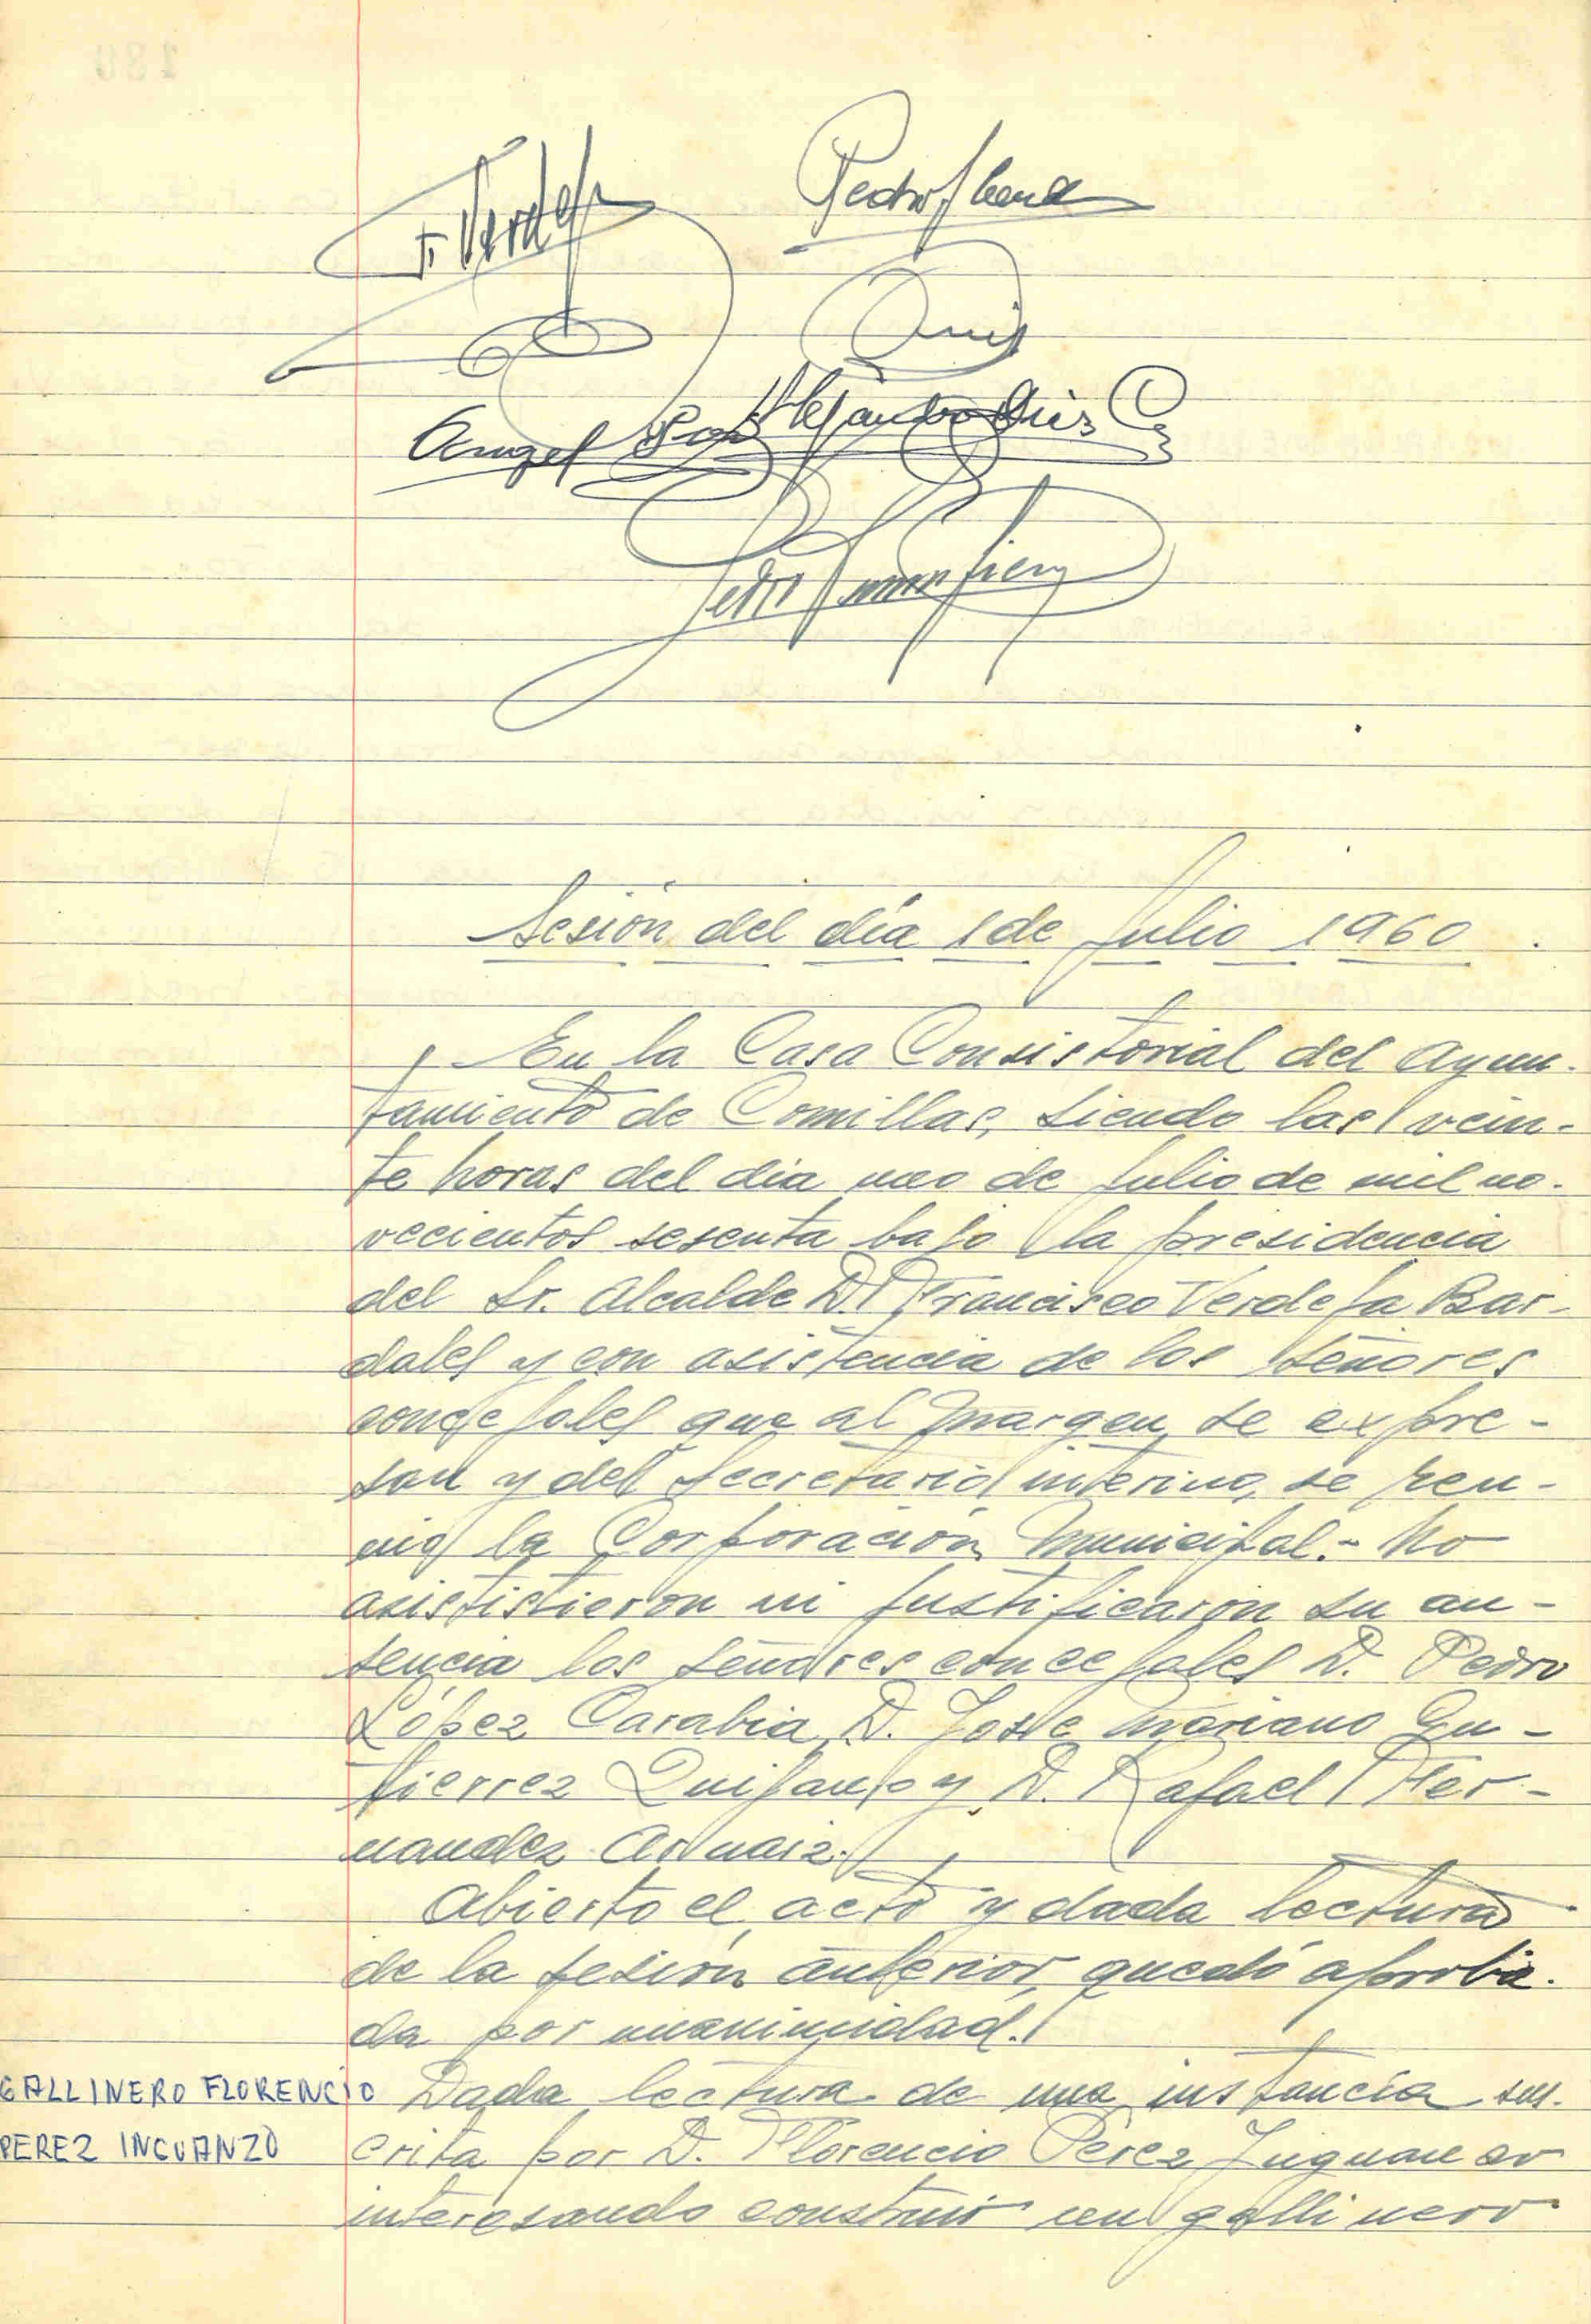 F. Verdeja
Pedro
Angel Alejandro Diez C
Sesión del día 1 de Julio 1960.
En la Casa Consistorial del Ayun-
tamiento de Comillas, siendo las vein-
te horas del dia uno de Julio de mil no-
vecientos sesenta bajo la presidencia
del Sr. Alcalde D. Francisco Verdeja Bar-
dales y con asistencia de los señores
concejales que al margen se expre-
san y del Secretario interino, se reu-
nio la Corporación Municipal.- No
asististieron ni justificaron su au-
sencia los señores concejales D. Pedro
López Carabia, D. Jose Mariano Gu-
tierrez Quijano y D. Rafael Her-
nandez Arnaiz.
Abierto el acto y dada lectura
de la sesión anterior, quedó aproba-
da por unanimidad.
GALLINERO FLORENCIO Dada lectura de una instancia sus-
PEREZ INCUANZO crita por D. Florencio Perez Inguanzo
interesando construir un gallinero